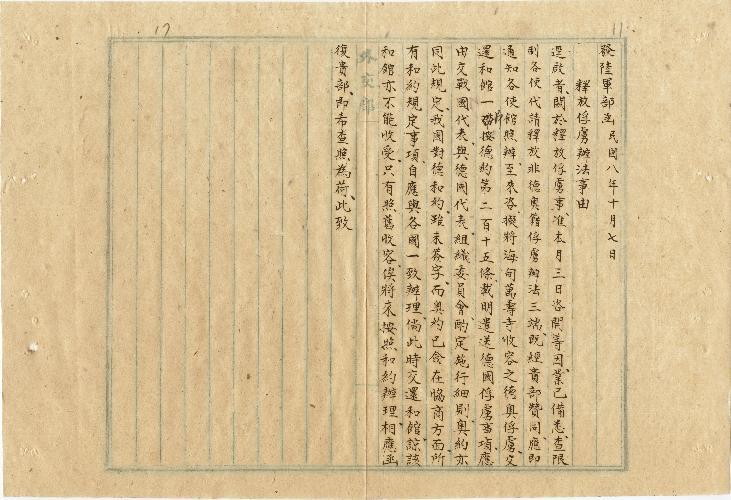 發陸軍部函 民國八年十月七日
釋放俘虜辦法事由
逕啟者關於釋放俘虜事准本月三日咨開等因業已備悉查限
制各使代請釋放非德奧籍俘虜辦法三端既經貴部贊同應即
通知各使館照辦至來咨擬將海甸萬壽寺收容之德奧俘虜交
還和館一節按德約第二百十五條載明遣送德國俘虜事項應
由交戰國代表與德國代表組織委員會酌定施行細則奧約亦
同此規定我國對德和約雖未簽字而奧約已簽在協商方面所
有和約規定事項自應與各國一致辦理倘此時交還和館諒該
和館亦不能收受只有照舊收容俟將來按照和約辦理相應函
復貴部即希查照為荷此致
外交部
11
12